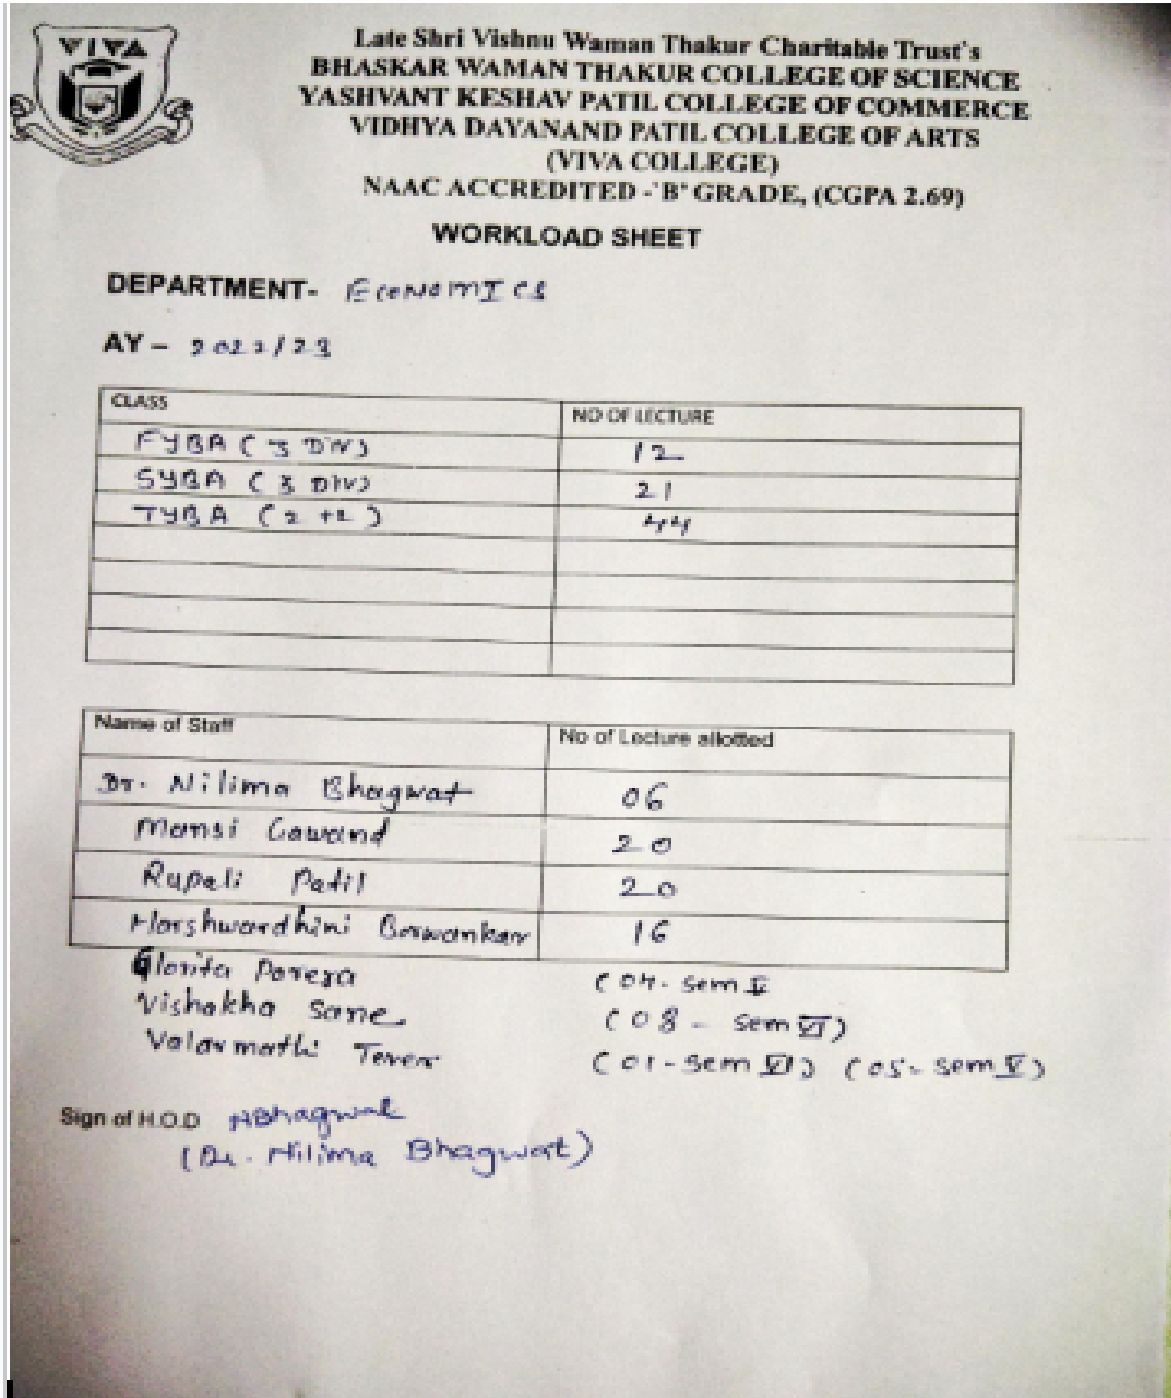 VIVA
Late Shri Vishnu Waman Thakur Charitable Trust's
BHASKAR WAMAN THAKUR COLLEGE OF SCIENCE
YASHVANT KESHAV PATIL COLLEGE OF COMMERCE
VIDHYA DAYANAND PATIL COLLEGE OF ARTS
(VIVA COLLEGE)
NAAC ACCREDITED -'B' GRADE, (CGPA 2.69)
WORKLOAD SHEET
DEPARTMENT- ECONOMICS
AY – 2022/23
CLASS NO OF LECTURE
FYBA (3 DIV) 12
SYBA (3 DIV) 21
TYBA (2+2) 44
Name of Staff No of Lecture allotted
Dr. Nilima Bhagwat 06
Mansi Gawand 20
Rupali Patil 20
Harshwardhini 16
Glorita Perera (04- sem V
Vishakha Sane (08 - sem VI)
Valarmathi (01-sem VI) (05- sem V)
Sign of H.O.D NBhagwat
(Dr. Nilima Bhagwat)